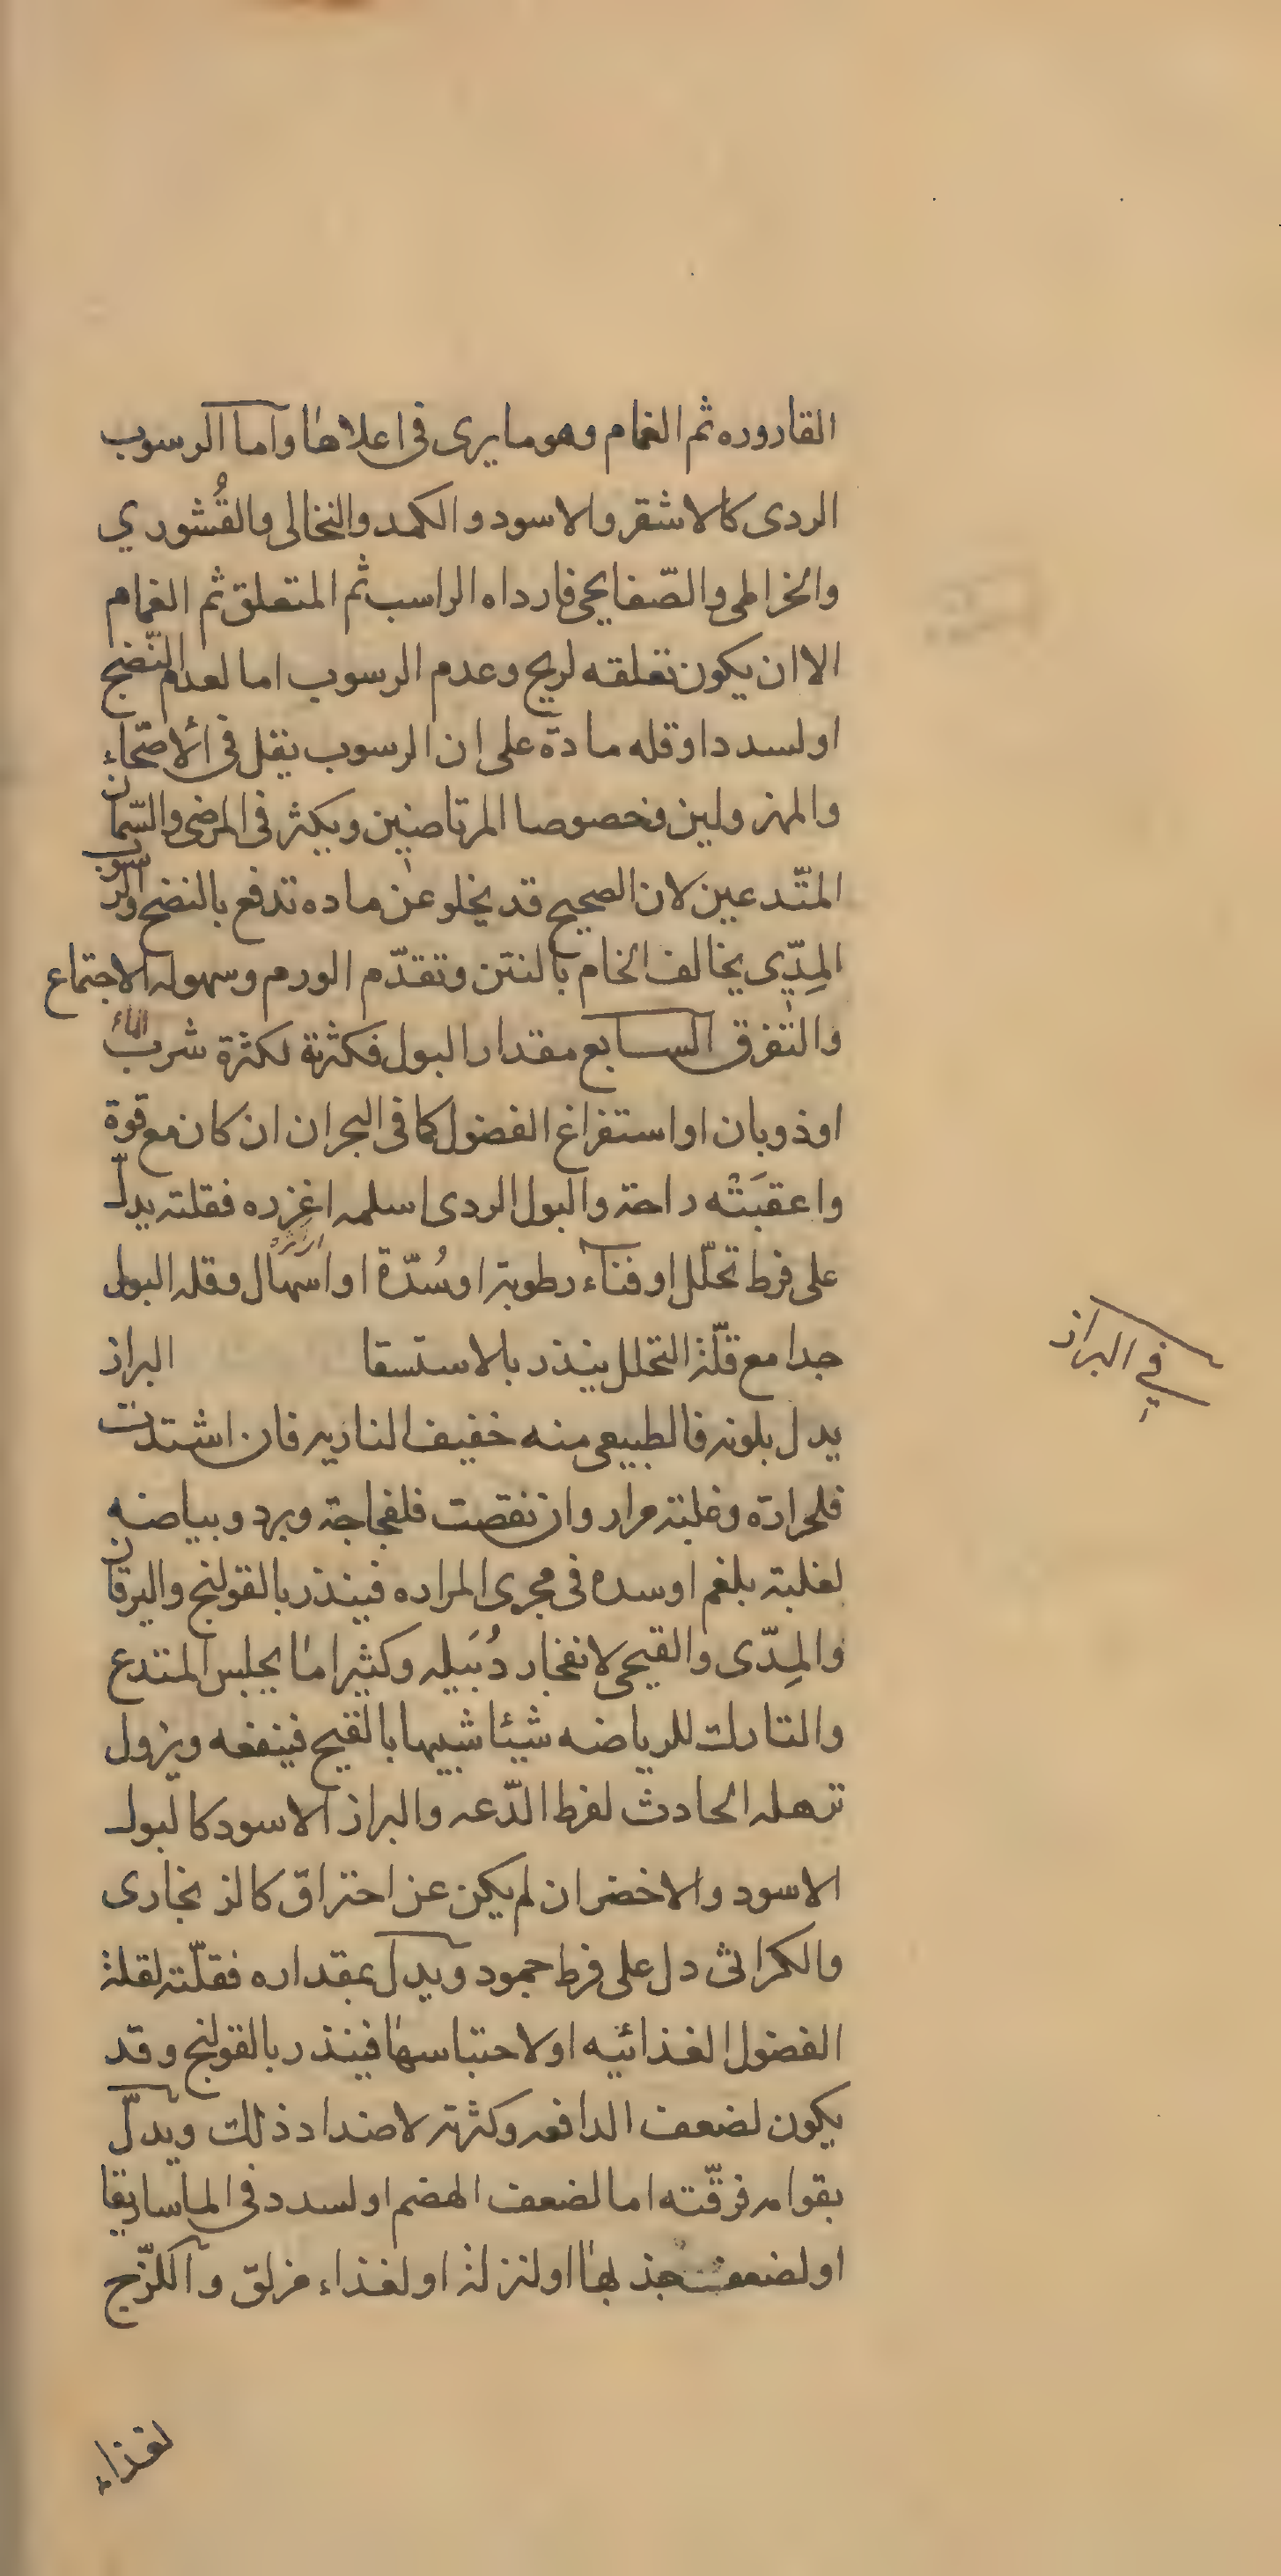 القاروره ثم الغمام وهو ما يرى فى اعلاها واما الرسوب
الردى كالاشقر والاسود والكمد والنخالى والقُشوري
والخراطى والصّفايحى فارداه الراسب ثم المتعلق ثم الغمام
الا ان يكون تعلقه لريح وعدم الرسوب اما لعدم النّضج
او لسدد او قله مادة على ان الرسوب يقل فى الاصحّاء
والمهزولين وخصوصا المرتاضين ويكثر فى المرضى والسّمان
المتّدعين لان الصحيح قد يخلو عن ماده تدفع بالنضج والرسوب
المِدّى يخالف الخام بالنتن وتقدّم الورم وسهوله الاجتماع
والتفرق السابع مقدار البول فكثرته لكثرة شرب الماء
او ذوبان او استفراغ الفضول كما فى البحران ان كان مع قوة
واعقبَتْه راحة والبول الردى اسلمه اغزره فقلته يدلّ
على فرط تحلّل او فناء رطوبة او سُدّة او اسهال وقله البول
جدا مع قلّة التحلل ينذر بالاستسقا البراز
يدل بلونه فالطبيعى منه خفيف الناريه فان اشتدت
فلحرارة وغلبة مرار وان نقصت فلفجاجة وبرد وبياضه
لغلبة بلغم او سده فى مجرى المراره فينذر بالقولنج واليرقان
والمِدّى والقيحى لانفجار دُبَيله وكثيرا ما يجلس المتدع
والتارك للرياضه شيئا شبيها بالقيح فينفعه ويزول
ترهله الحادث لفرط الدّعه والبراز الاسود كالبول
الاسود والاخضر ان لم يكن عن احتراق كالزنجارى
والكراثى دل على فرط جمود ويدل بمقداره فقلّته لقلة
الفضول الغذائيه او لاحتباسها فينذر بالقولنج وقد
يكون لضعف الدافعه وكثرته لاضداد ذلك ويدلّ
بقوامه فرقّته اما لضعف الهضم او لسدد فى الماساريقا
او لضعف جذبها او لنزلة او لغذاء مزلق واللزّج
لغذاء
في البراز